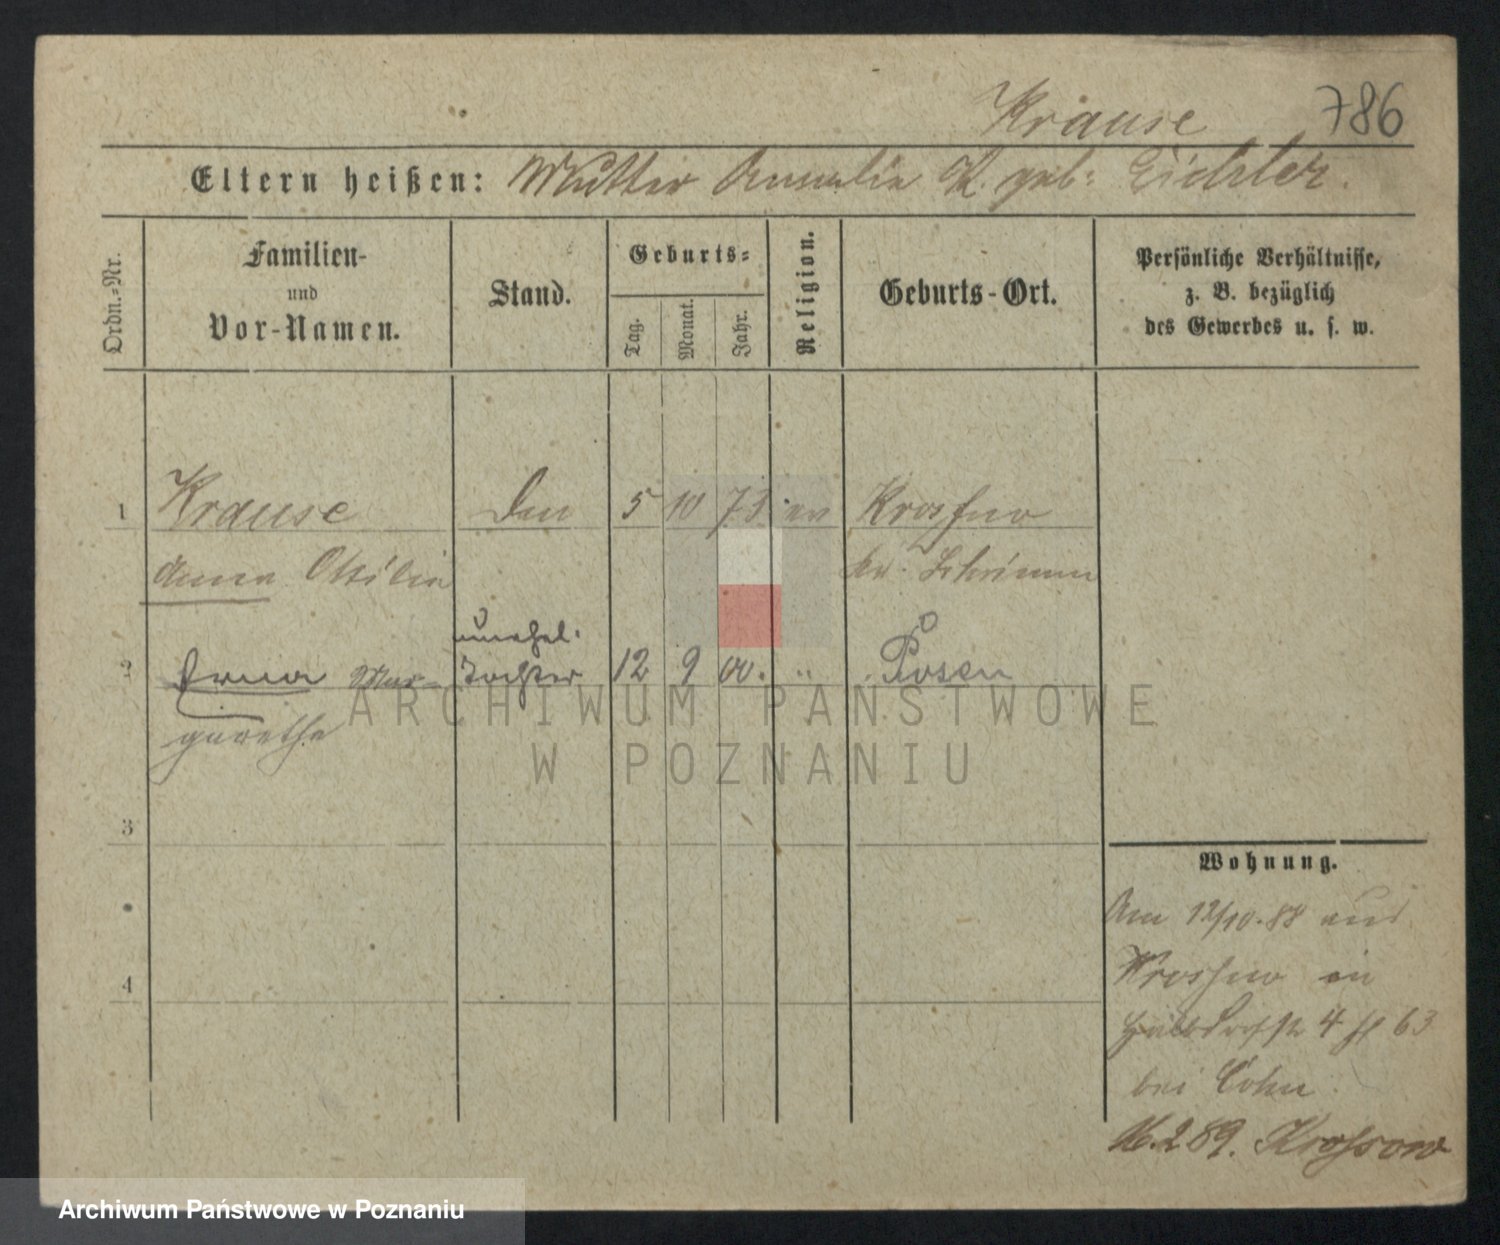 Krause 786
Eltern heißen: Mutter Amalie K. geb: Eichler.
Ordn.-Nr.
Familien-
und
Vor-Namen.
Stand.
Geburts-
Tag.
Monat.
Jahr.
Religion.
Geburts-Ort.
Persönliche Verhältnisse,
z. B. bezüglich
des Gewerbes u. s. w.
1 Krause 5 10 73 ev Krosno
Anna Ottilie Kr. Schrimm
unehel.
2 Erna Mar- Tochter 12 9 00. " Posen
garethe
3
4
Wohnung.
Am 12/10.88 aus
Krosno in
4 63
bei Cohn
16.2 89.
ARCHIWUM PAŃSTWOWE
W POZNANIU
Archiwum Państwowe w Poznaniu